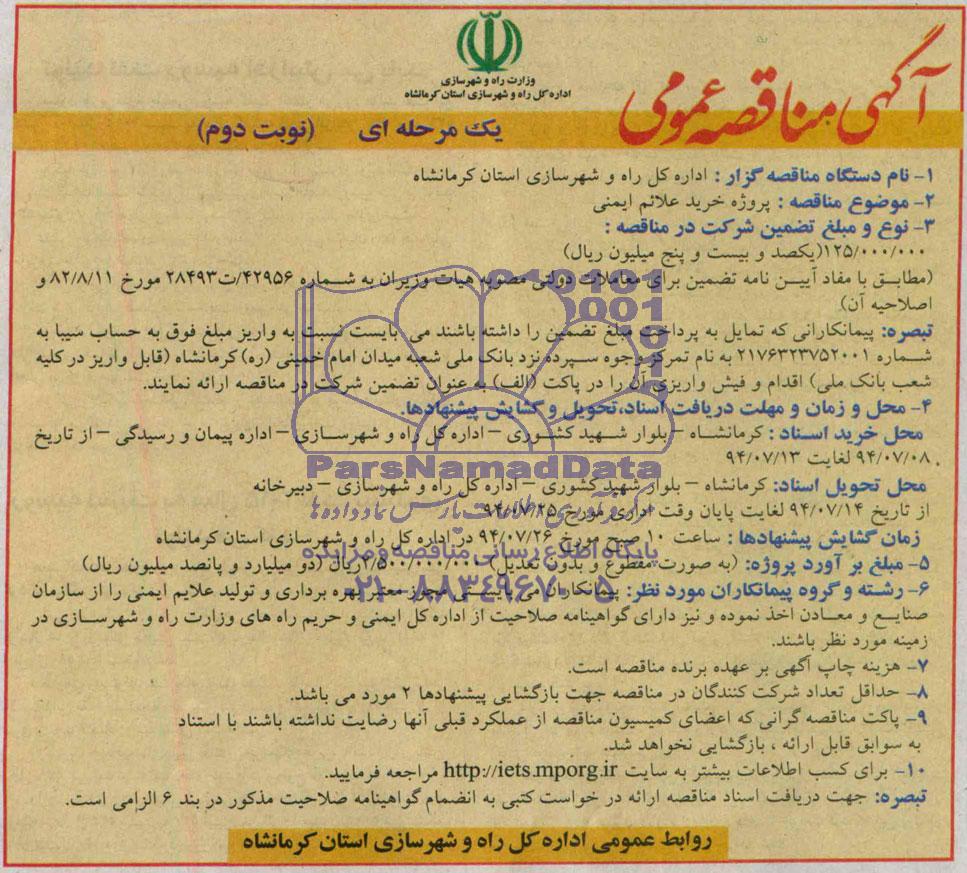 وزارت راه و شهرسازی
اداره کل راه و شهرسازی استان کرمانشاه
آگهی مناقصه عمومی
یک مرحله ای (نوبت دوم)
۱- نام دستگاه مناقصه گزار : اداره کل راه و شهرسازی استان کرمانشاه
۲- موضوع مناقصه : پروژه خرید علائم ایمنی
۳- نوع و مبلغ تضمین شرکت در مناقصه :
۱۲۵/۰۰۰/۰۰۰(یکصد و بیست و پنج میلیون ریال)
(مطابق با مفاد آیین نامه تضمین برای معاملات دولتی مصوبه هیات وزیران به شماره ۴۲۹۵۶/ت۲۸۴۹۳ مورخ ۸۲/۸/۱۱ و
اصلاحیه آن)
تبصره: پیمانکارانی که تمایل به پرداخت مبلغ تضمین را داشته باشند می بایست نسبت به واریز مبلغ فوق به حساب سیبا به
شماره ۲۱۷۶۳۲۳۷۵۲۰۰۱ به نام تمرکز وجوه سپرده نزد بانک ملی شعبه میدان امام خمینی (ره) کرمانشاه (قابل واریز در کلیه
شعب بانک ملی) اقدام و فیش واریزی آن را در پاکت (الف) به عنوان تضمین شرکت در مناقصه ارائه نمایند.
۴- محل و زمان و مهلت دریافت اسناد،تحویل و گشایش پیشنهادها.
محل خرید اسناد : کرمانشاه – بلوار شهید کشوری – اداره کل راه و شهرسازی – اداره پیمان و رسیدگی – از تاریخ
۹۴/۰۷/۰۸ لغایت ۹۴/۰۷/۱۳
محل تحویل اسناد: کرمانشاه – بلوار شهید کشوری – اداره کل راه و شهرسازی – دبیرخانه
از تاریخ ۹۴/۰۷/۱۴ لغایت پایان وقت اداری مورخ ۹۴/۰۷/۲۵
زمان گشایش پیشنهادها : ساعت ۱۰ صبح مورخ ۹۴/۰۷/۲۶ در اداره کل راه و شهرسازی استان کرمانشاه
۵- مبلغ بر آورد پروژه: (به صورت مقطوع و بدون تعدیل) ۲/۵۰۰/۰۰۰/۰۰۰ریال (دو میلیارد و پانصد میلیون ریال)
۶- رشته و گروه پیمانکاران مورد نظر: پیمانکاران می بایستی مجوز معتبر بهره برداری و تولید علایم ایمنی را از سازمان
صنایع و معادن اخذ نموده و نیز دارای گواهینامه صلاحیت از اداره کل ایمنی و حریم راه های وزارت راه و شهرسازی در
زمینه مورد نظر باشند.
۷- هزینه چاپ آگهی بر عهده برنده مناقصه است.
۸- حداقل تعداد شرکت کنندگان در مناقصه جهت بازگشایی پیشنهادها ۲ مورد می باشد.
۹- پاکت مناقصه گرانی که اعضای کمیسیون مناقصه از عملکرد قبلی آنها رضایت نداشته باشند با استناد
به سوابق قابل ارائه ، بازگشایی نخواهد شد.
۱۰- برای کسب اطلاعات بیشتر به سایت http://iets.mporg.ir مراجعه فرمایید.
تبصره: جهت دریافت اسناد مناقصه ارائه در خواست کتبی به انضمام گواهینامه صلاحیت مذکور در بند ۶ الزامی است.
روابط عمومی اداره کل راه و شهرسازی استان کرمانشاه
ParsNamadData
مرکز فرآوری اطلاعات پارس نماد داده ها
پایگاه اطلاع رسانی مناقصه و مزایده
۰۲۱-۸۸۳۴۹۶۷۰-۵